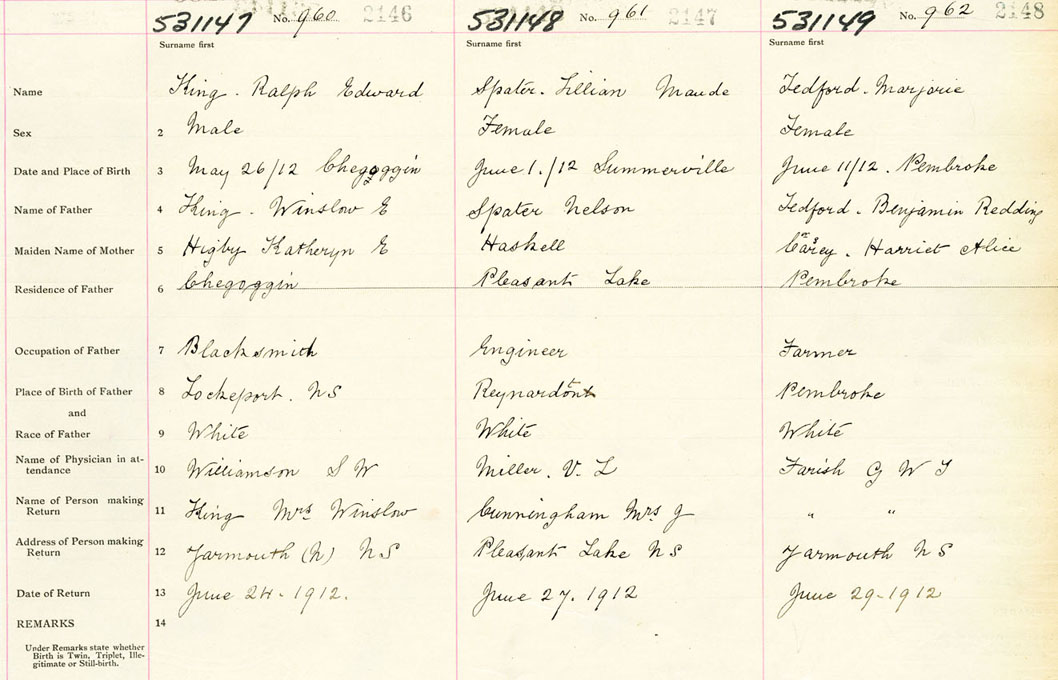 531147 No. 960 2146 531148 No. 961 2147 531149 No. 962 2148
Surname first Surname first Surname first
Name King. Ralph Edward Spater. Lillian Maude Tedford. Marjorie
Sex 2 Male Female Female
Date and Place of Birth 3 May 26/12 Chegoggin June 1./12 Summerville June 11/12. Pembroke
Name of Father 4 King. Winslow E Spater Nelson Tedford. Benjamin Redding
Maiden Name of Mother 5 Higby Katheryn E Haskell Harriet Alice
Residence of Father 6 Chegoggin Pleasant Lake Pembroke
Occupation of Father 7 Blacksmith Engineer Farmer
Place of Birth of Father 8 Lockeport. NS Pembroke
and
Race of Father 9 White White White
Name of Physician in at-
tendance 10 Williamson S W Miller. V. L Farish G W T
Name of Person making
Return 11 King Mrs Winslow Cunningham Mrs J " "
Address of Person making
Return 12 Yarmouth (N) NS Pleasant Lake NS Yarmouth NS
Date of Return 13 June 24-1912. June 27. 1912 June 29-1912
REMARKS 14
Under Remarks state whether
Birth is Twin, Triplet, Ille-
gitimate or Still-birth.